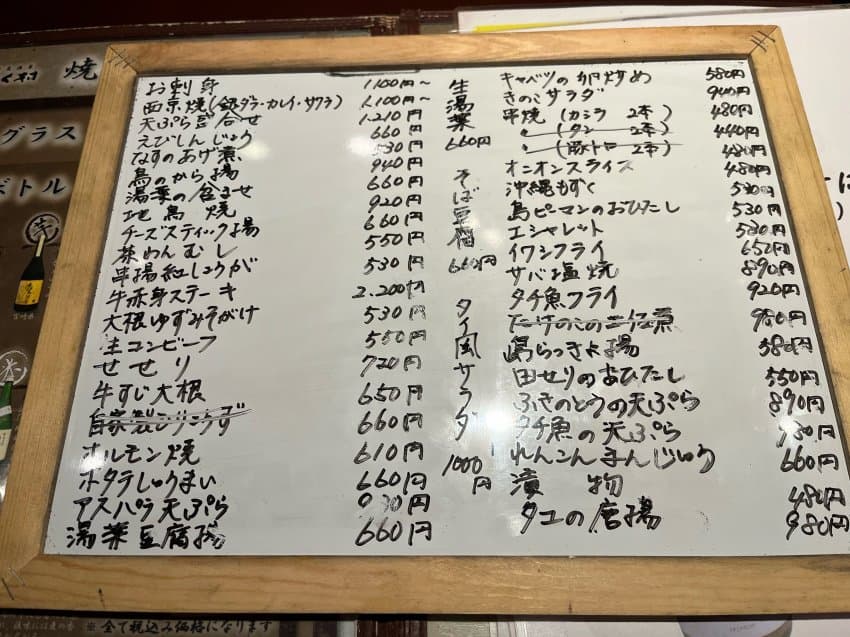 く村 焼
グラス
ボトル
お刺身 1.100円～
西京焼(銀ダラ・カレイ・サワラ) 1.100円～
天ぷら盛合せ 1.210円
えびしんじょう 660円
なすのあげ煮 530円
鳥のから揚 940円
湯葉の含ませ 660円
地鳥焼 920円
チーズスティック揚 660円
茶わんむし 550円
串揚紅しょうが 530円
牛赤身ステーキ 2.200円
大根ゆずみそがけ 530円
生コンビーフ 550円
せせり 720円
牛すじ大根 650円
自家製ひりょうず 660円
ホルモン焼 610円
ホタテしゅうまい 660円
アスパラ天ぷら 930円
湯葉豆腐揚 660円
生湯葉 660円
そば豆腐 660円
タイ風サラダ 1000円
キャベツの卵炒め 580円
きのこサラダ 940円
串焼(カシラ 2本) 480円
〃(タン 2本) 440円
〃(豚トロ 2本) 480円
オニオンスライス 480円
沖縄もずく 530円
島ピーマンのおひたし 530円
エシャレット 530円
イワシフライ 650円
サバ塩焼 890円
タチ魚フライ 920円
たけのこの土佐煮 980円
島らっきょ揚 580円
田せりのおひたし 550円
ふきのとうの天ぷら 890円
タチ魚の天ぷら
れんこんまんじゅう 660円
漬物 480円
タコの唐揚 980円
※全て税込み価格になります